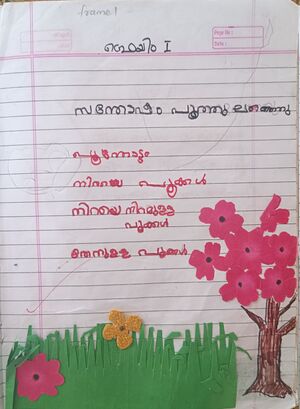 frame 1
Page No:
Date:
ഫ്രെയിം I
സന്തോഷം പൂത്തുലഞ്ഞു
പൂന്തോട്ടം
നിറയെ പൂക്കൾ
നിറയെ നിറമുള്ള
പൂക്കൾ
തേനുള്ള പൂക്കൾ